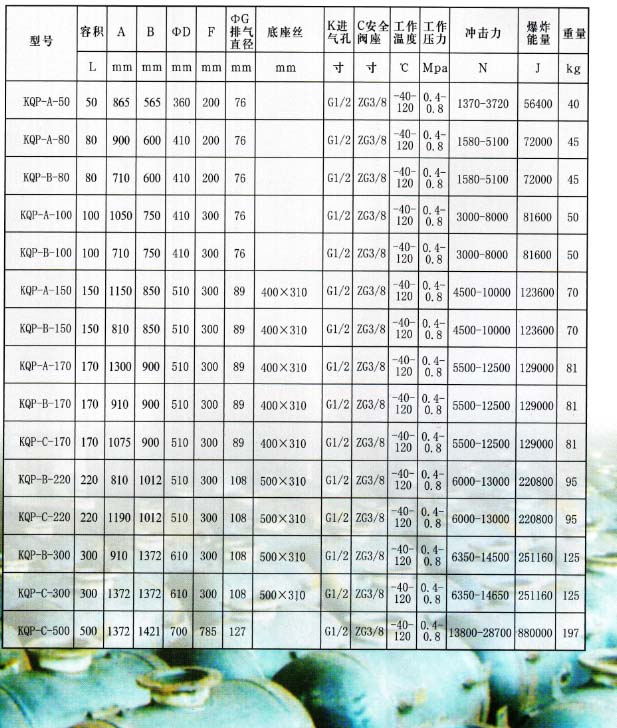 型号 容积 A B ΦD F ΦG排气直径 底座丝 K进气孔 C安全阀座 工作温度 工作压力 冲击力 爆炸能量 重量
L mm mm mm mm mm mm 寸 寸 ℃ Mpa N J kg
KQP-A-50 50 865 565 360 200 76 G1/2 ZG3/8 -40-120 0.4-0.8 1370-3720 56400 40
KQP-A-80 80 900 600 410 200 76 G1/2 ZG3/8 -40-120 0.4-0.8 1580-5100 72000 45
KQP-B-80 80 710 600 410 200 76 G1/2 ZG3/8 -40-120 0.4-0.8 1580-5100 72000 45
KQP-A-100 100 1050 750 410 300 76 G1/2 ZG3/8 -40-120 0.4-0.8 3000-8000 81600 50
KQP-B-100 100 710 750 410 300 76 G1/2 ZG3/8 -40-120 0.4-0.8 3000-8000 81600 50
KQP-A-150 150 1150 850 510 300 89 400×310 G1/2 ZG3/8 -40-120 0.4-0.8 4500-10000 123600 70
KQP-B-150 150 810 850 510 300 89 400×310 G1/2 ZG3/8 -40-120 0.4-0.8 4500-10000 123600 70
KQP-A-170 170 1300 900 510 300 89 400×310 G1/2 ZG3/8 -40-120 0.4-0.8 5500-12500 129000 81
KQP-B-170 170 910 900 510 300 89 400×310 G1/2 ZG3/8 -40-120 0.4-0.8 5500-12500 129000 81
KQP-C-170 170 1075 900 510 300 89 400×310 G1/2 ZG3/8 -40-120 0.4-0.8 5500-12500 129000 81
KQP-B-220 220 810 1012 510 300 108 500×310 G1/2 ZG3/8 -40-120 0.4-0.8 6000-13000 220800 95
KQP-C-220 220 1190 1012 510 300 108 500×310 G1/2 ZG3/8 -40-120 0.4-0.8 6000-13000 220800 95
KQP-B-300 300 910 1372 610 300 108 500×310 G1/2 ZG3/8 -40-120 0.4-0.8 6350-14500 251160 125
KQP-C-300 300 1372 1372 610 300 108 500×310 G1/2 ZG3/8 -40-120 0.4-0.8 6350-14650 251160 125
KQP-C-500 500 1372 1421 700 785 127 G1/2 ZG3/8 -40-120 0.4-0.8 13800-28700 880000 197